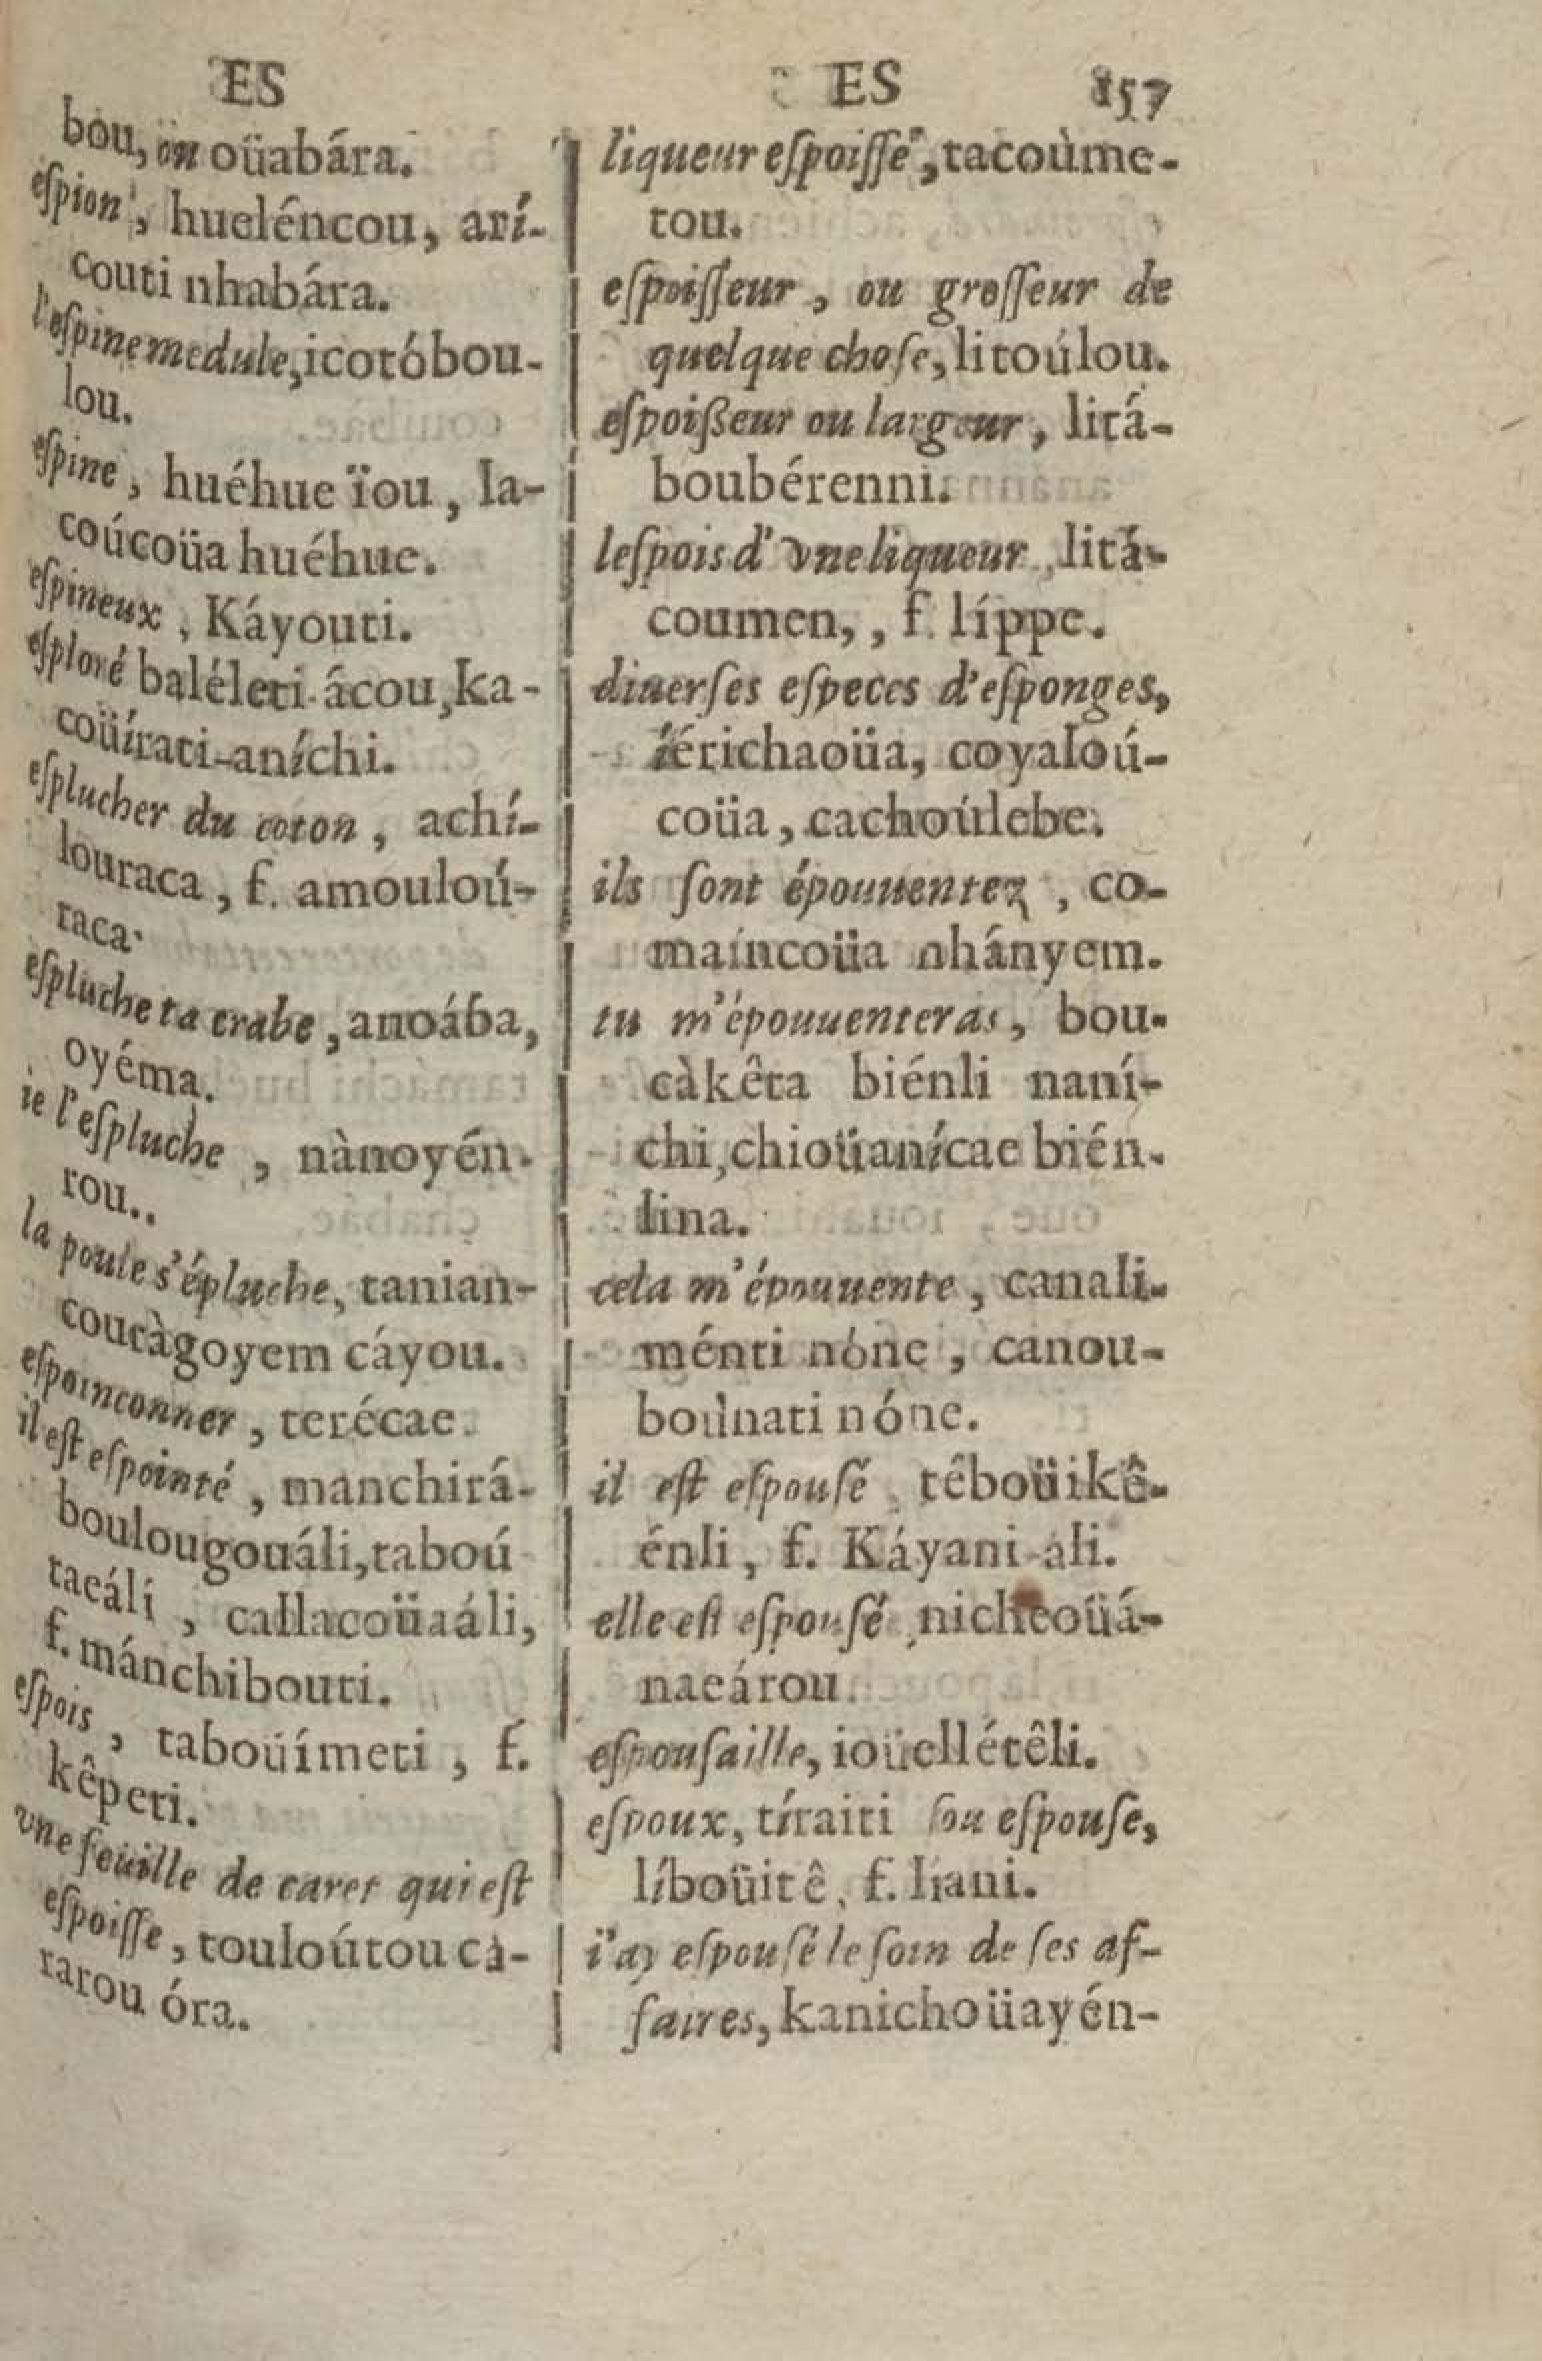 ES
bou, ön oüabára.
eſpion, hueléncou, arí-
couti nhabára.
l'eſpine medule, icotóbou-
lou.
eſpine, huéhue ïou, la-
coúcoüa huéhue.
eſpineux, Káyouti.
eſploré baléleti-ácou, ka-
coüírati-aníchi.
eſplucher du coton, achí-
louraca, f. amouloú-
raca.
eſpluche ta crabe, anoába,
oyéma.
ie l'eſpluche, nànoyén-
rou..
la poule s'épluche, tanian-
coutàgoyem cáyou.
eſpoinconner, terécae.
il eſt eſpointé, manchirá-
boulougouáli, taboú
taeáli, callacoüaáli,
f. mánchibouti.
eſpois, taboüímeti, f.
kêpeti.
vne feuille de caret qui eſt
eſpoiſſe, touloútou ca-
rarou óra.
ES 857
liqueur eſpoiſſe, tacoùme-
tou.
eſpoiſſeur, ou groſſeur de
quelque choſe, litoúlou.
eſpoißeur ou largeur, litá-
boubérenni.
leſpois d'vne liqueur, litá-
coumen,, f. líppe.
diuerſes eſpeces d'eſponges,
íérichaoüa, coyaloú-
coüa, cachoúlebe.
ils ſont épouuentez, co-
maíncoüa nhányem.
tu m'épouuenteras, bou-
càkêta biénli naní-
chi, chioüanícae bién-
lina.
cela m'épouuente, canali-
ménti nóne, canou-
boúnati nóne.
il eſt eſpouſé têboüikê-
énli, f. Káyani-áli.
elle eſt eſpouſé, nicheoüá-
naeárou.
eſpouſaille, ioüellétêli.
eſpoux, tíraiti ſou eſpouſe,
líboüitê, f. liani.
i'ay eſpouſé le ſoin de ſes af-
faires, kanichoüayén-